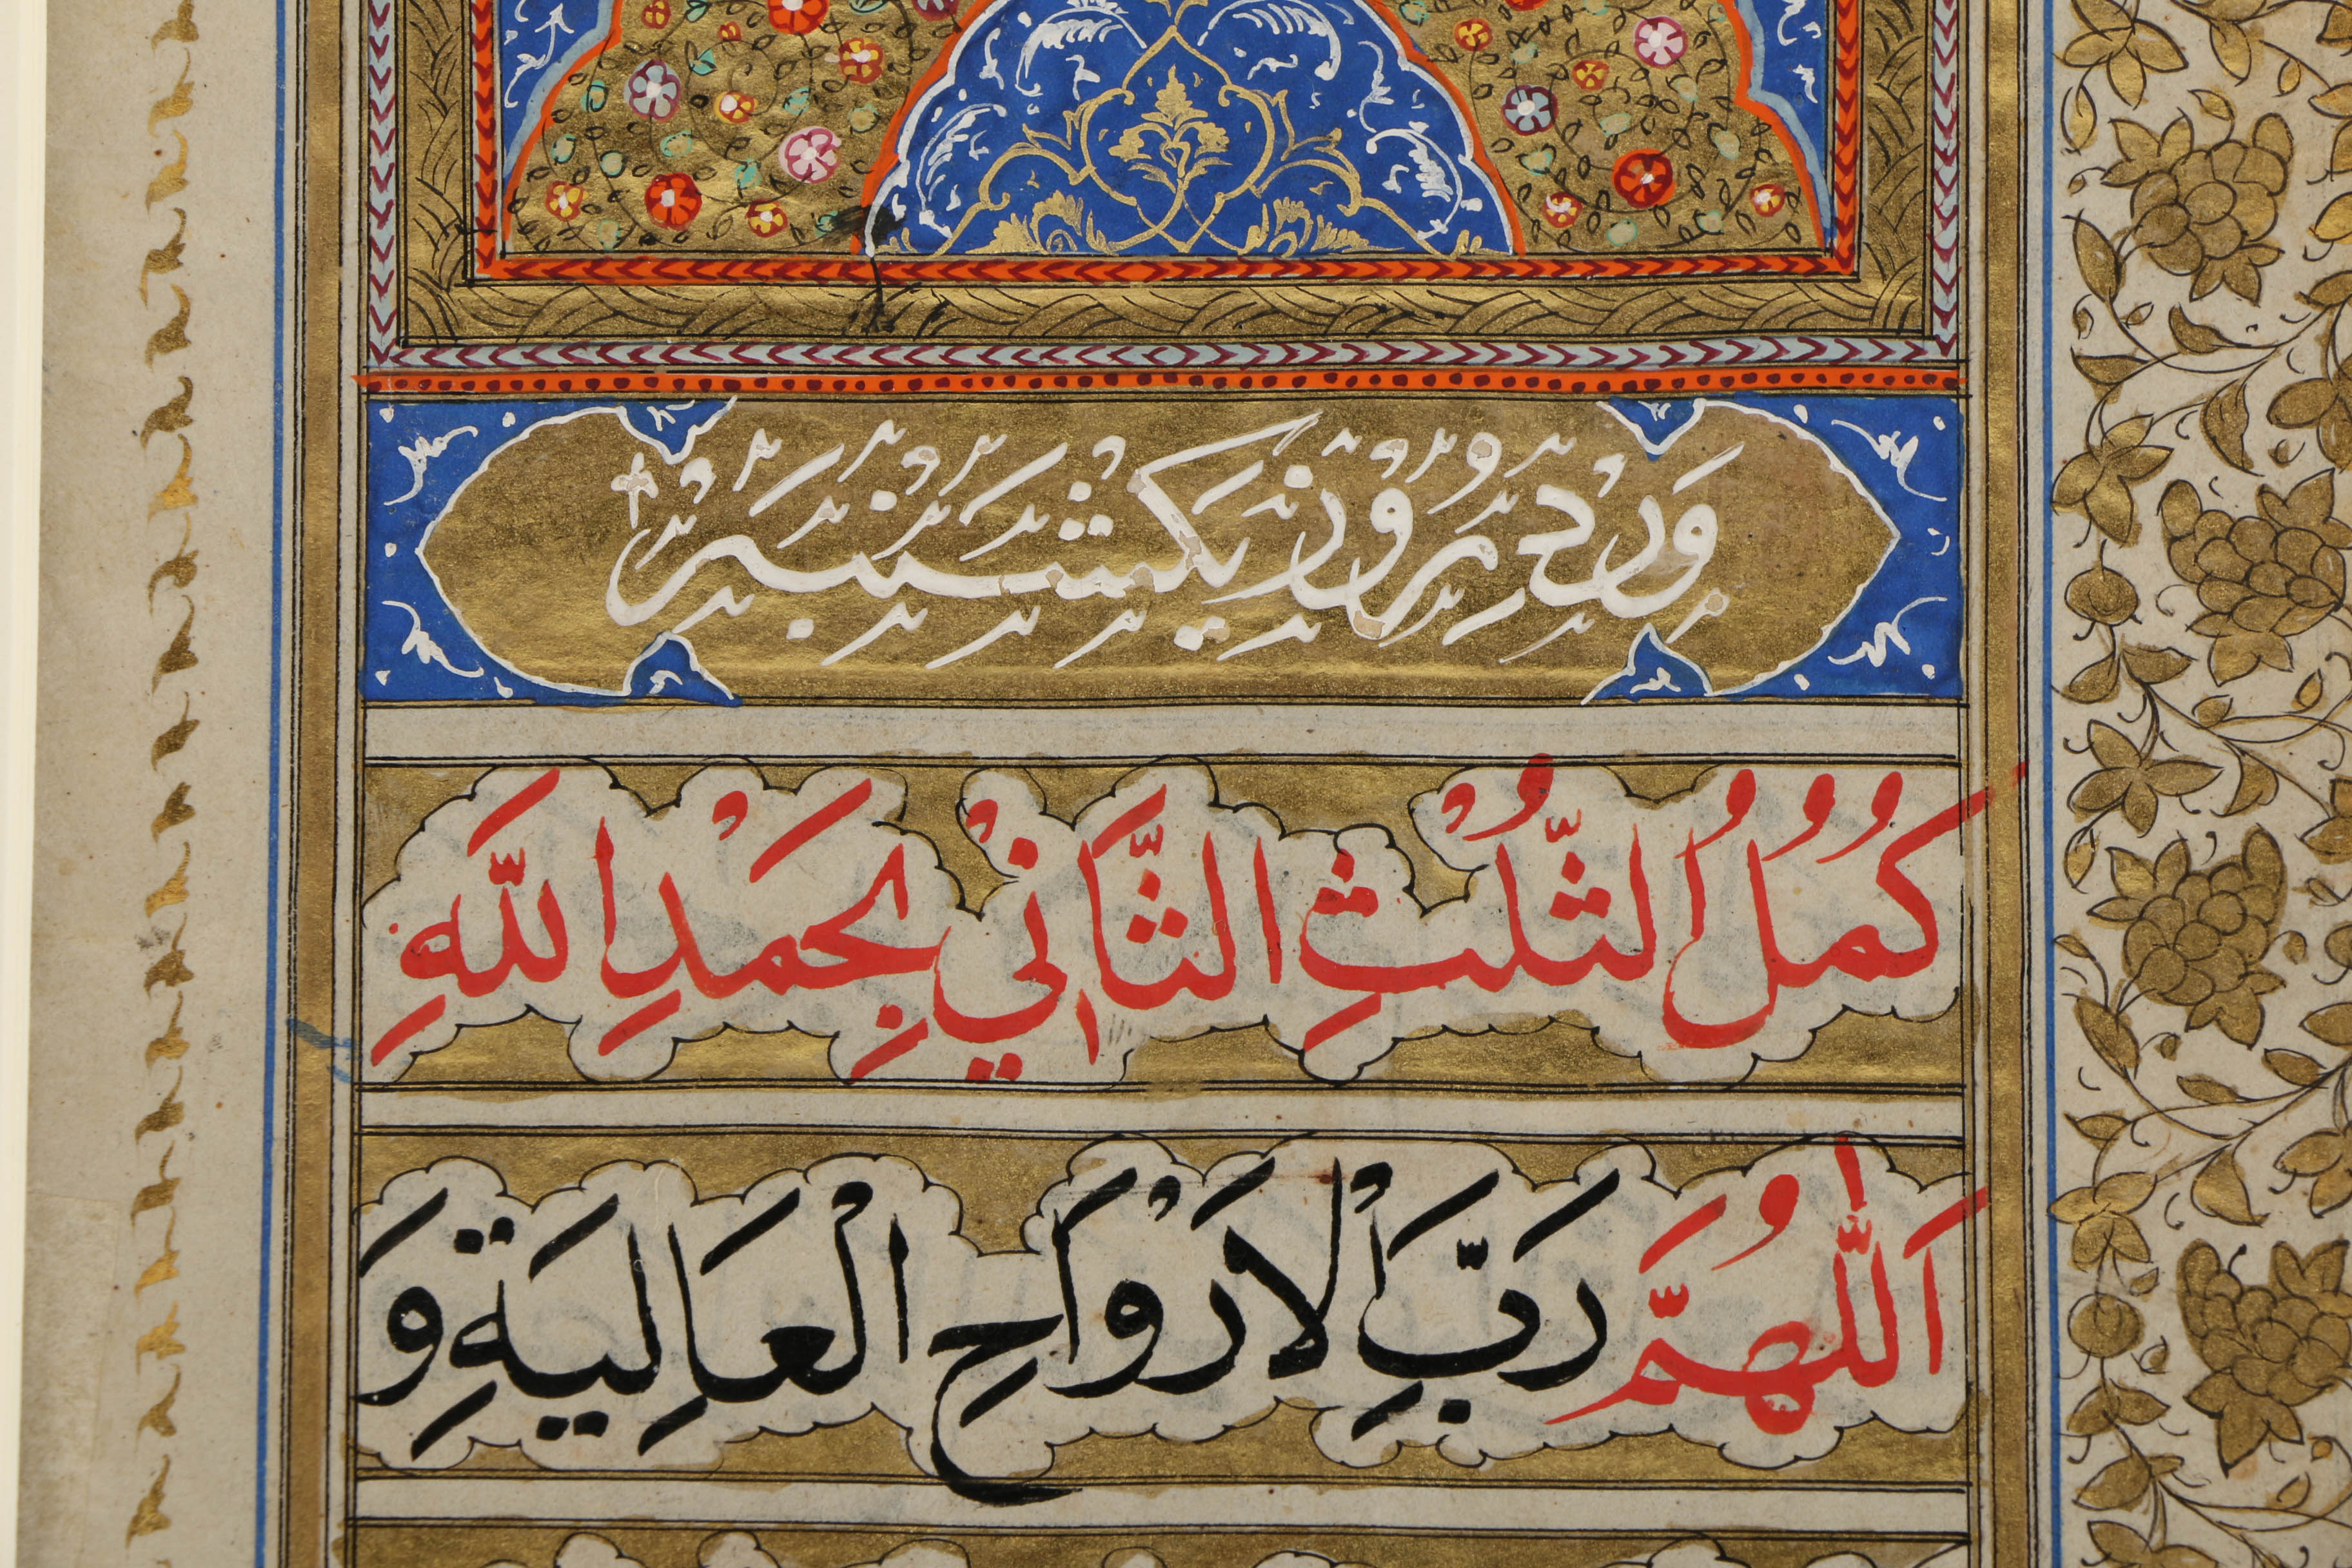 وِرْدِ رُوْزِ يَكْشَنْبَه
كُمُلُ الثُّلُثِ الثَّانِيْ بِحَمْدِ اللَّهِ
اَللّٰهُمَّ رَبَّ الْاَرْوَاحِ الْعَالِيَةِ وَ